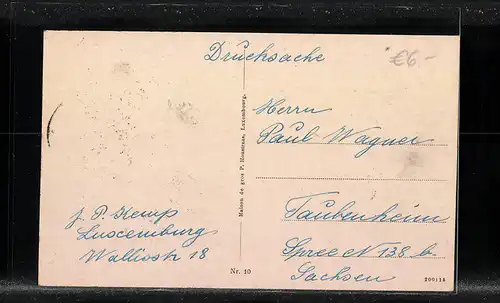 Drucksache
€6-
Herrn
Paul Wagner
Taubenheim
Spree N 138 b
Sachsen
J. P. Kemp
Luxemburg
Wallisstr 18
Maison de gros P. Houstraas, Luxembourg.
Nr. 10
20011A